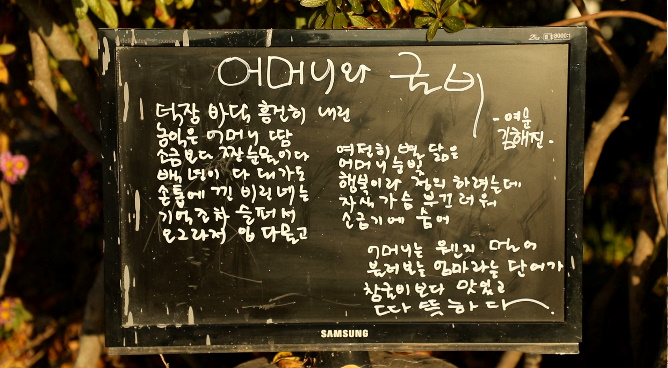 어머니와 굴비
- 여운
김해진 -
덕장 바닥 흥건히 내린
농익은 어머니 땀
소금보다 짠 눈물이다
백 년이 다 대가도
손톱에 낀 비린내는
기억조차 슬퍼서
오그라져 입 다물고
여전히 별 닮은
어머니 눈빛
행복이라 정의 하려는데
자식 가슴 부끄러워
소금기에 숨어
어머니는 왠지 멀어
불러보는 엄마라는 단어가
참굴비보다 맛있고
따뜻하다
SAMSUNG